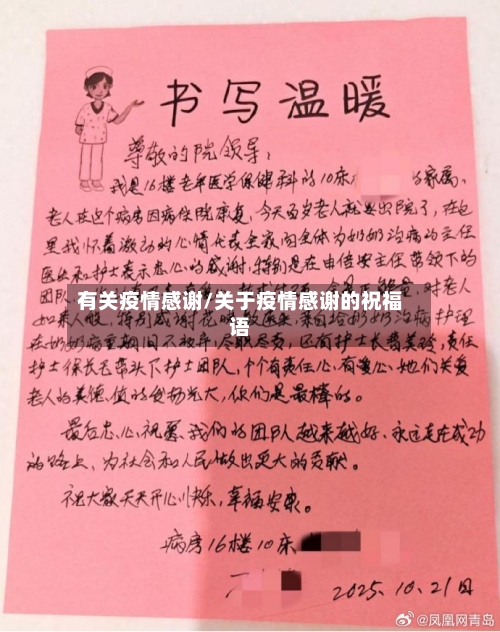 书写温暖
尊敬的院领导：
我是16楼老年医学保健科的10床 的家属。
老人在这个病房因病住院康复，今天百岁老人就要出院了，在这
里我怀着激动的心情代表全家向全体为奶奶治病的主任
医生和护士表示忠心的感谢，特别是在申倍安主任带领下的
团队
对老人
有关疫情感谢/关于疫情感谢的祝福
语
如亲人般，特别感谢
奶奶治病护理
在奶奶病重期间不放弃，尽职尽责，还有护士长 责任
护士 带头下护士团队，个个有责任心，有爱心，她们关爱
老人的美德，值的发扬光大，你们是最棒的。
最后忠心祝愿，我们的团队越来越好，永远走在成功
的路上，为社会和人民做出更大的贡献。
祝大家天天开心快乐，幸福安康。
病房16楼10床
2025.10.21日
@凤凰网青岛